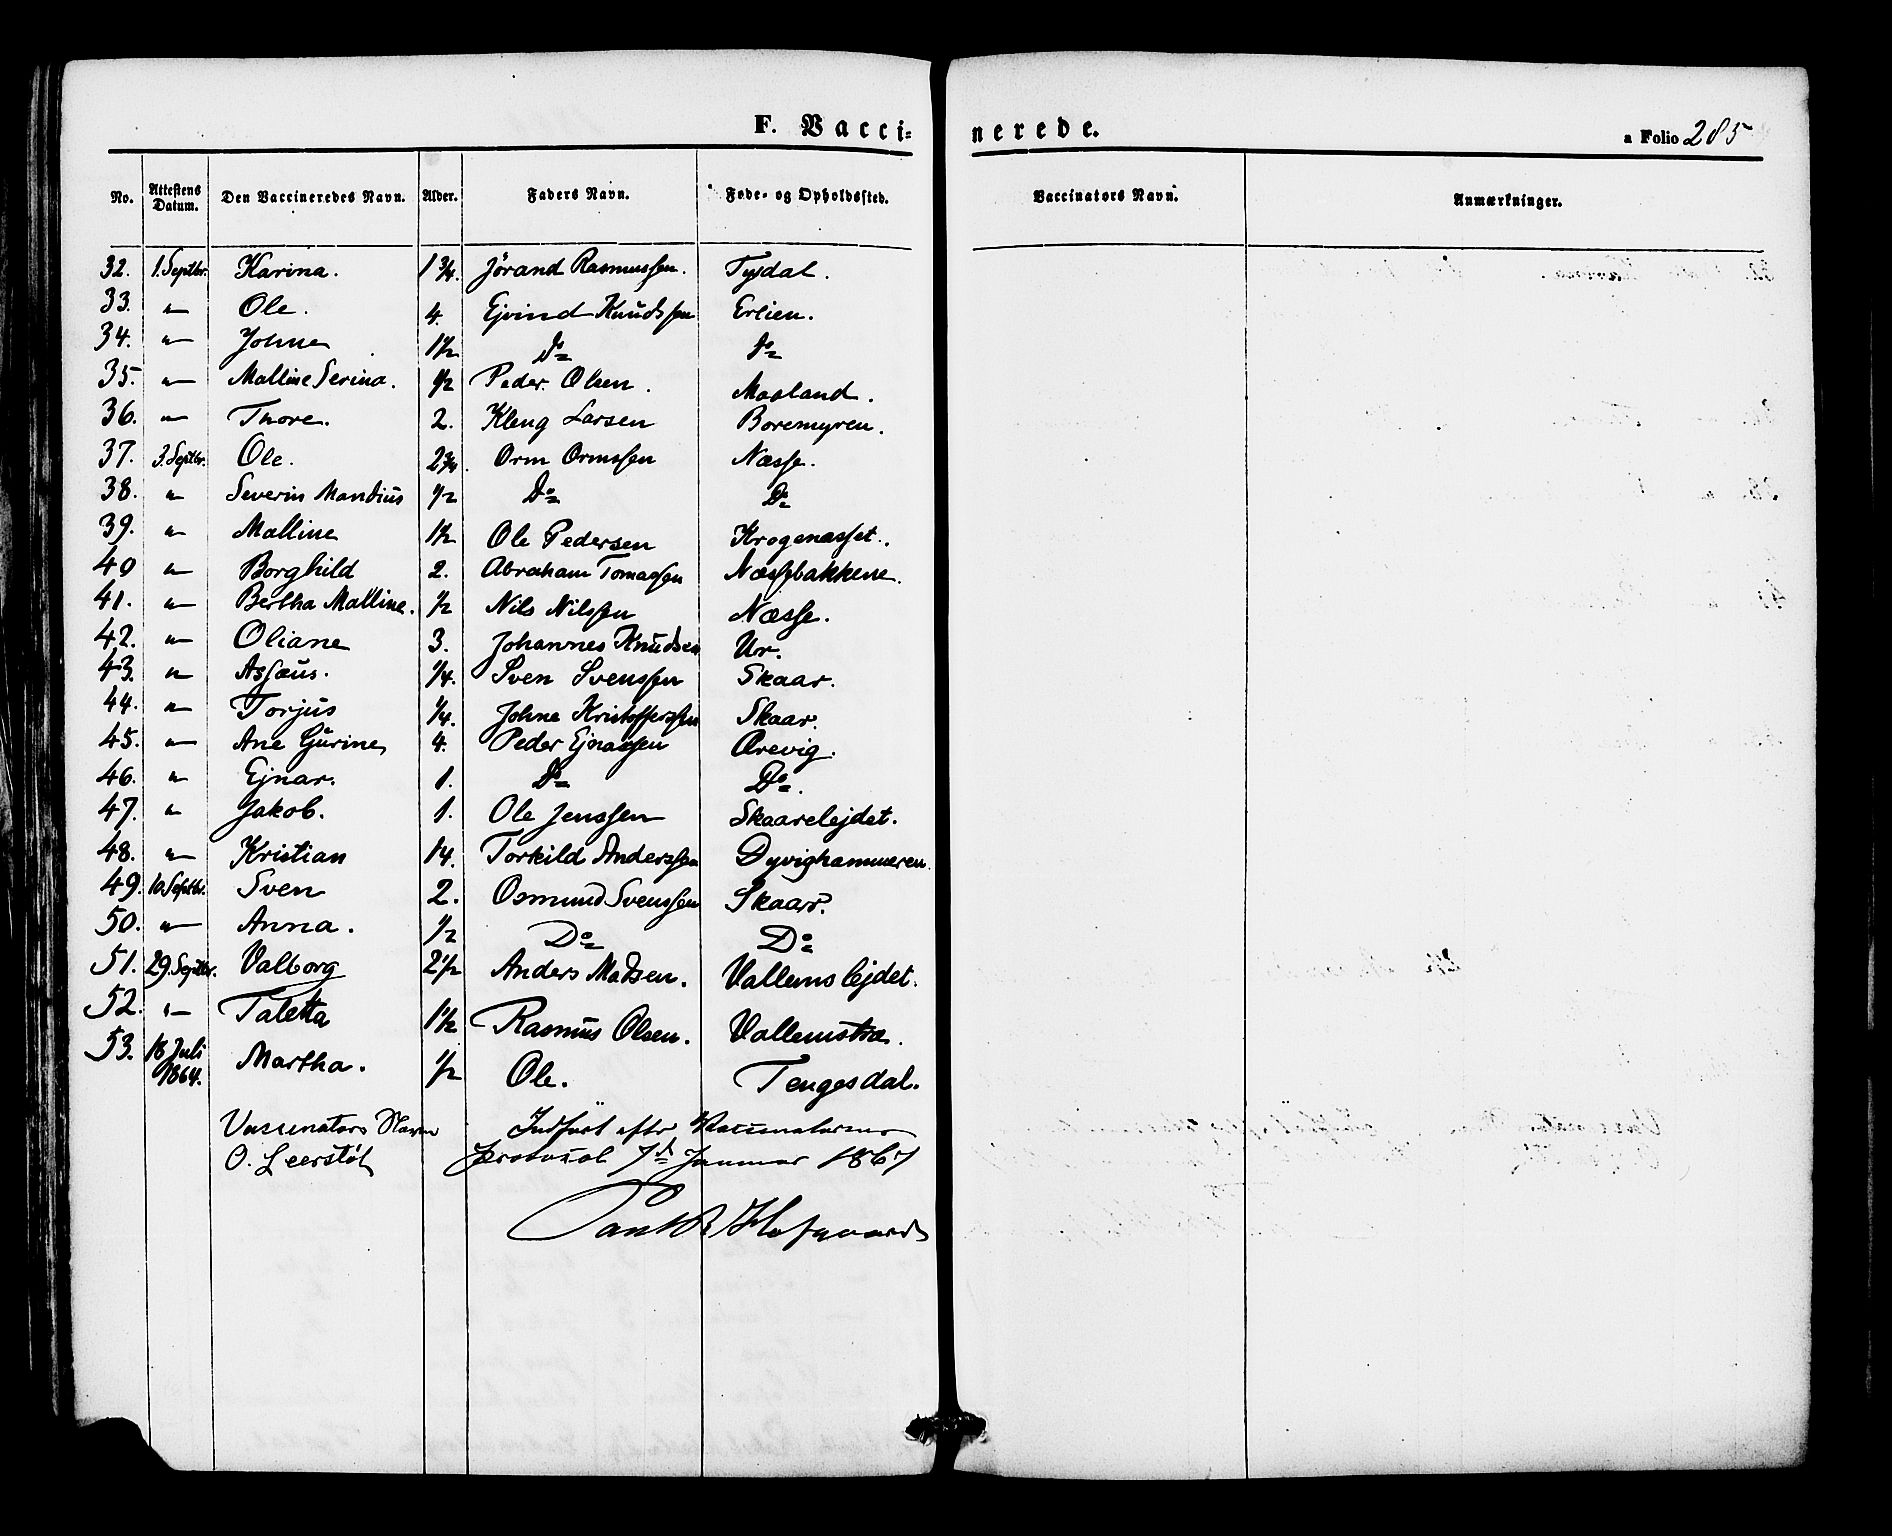 F. Vaccinerede.
a Folio 285
No. Attestens Datum. Den Vaccineredes Navn. Alder. Faders Navn. Føde- og Opholdssted. Vaccinators Navn. Anmærkninger.
32. 1. Septbr. Karina. 1 3/4. Jørand Rasmussen. Tysdal.
33. " Ole. 4. Ejvind Knudssen Erlien.
34. " Johne 1 1/2 Do Do
35. " Malline Serina. 1/2 Peder Olsen. Masland.
36. " Thore. 2. Kleng Larsen Boremyren.
37. 3. Septbr. Ole. 2 3/4. Orm Ormssen Næsse.
38. " Severin Mandius 1/2 Do Do
39. " Malline 1 1/2 Ole Pedersen Krogenæsset.
40 " Borghild 2. Abraham Tomassen Næssebakkene.
41. " Bertha Malline. 1/2 Nils Nilssen Næsse.
42. " Oliane 3. Johannes Knudsen Ur.
43. " Assæus. 1/4. Sven Svenssen Skaar.
44. " Torjus 1/4. Johne Kristofferssen Skaar.
45. " Ane Gurine 4. Peder Ejnassen Ørevig.
46. " Ejnar. 1. Do Do.
47. " Jakob. 1. Ole Jenssen Skaarelejdet.
48. " Kristian 14. Torkild Anderssen Dyvighammeren.
49. 10. Septbr. Sven 2. Osmund Svenssen Skaar.
50. " Anna. 1/2 Do Do
51. 29. Septbr. Valborg 2 1/2 Anders Madsen. Vallemslejdet.
52. " Taletta 1 1/2 Rasmus Olsen. Vallemstræ.
53. 18 Juli 1864. Martha. 1/2 Ole. Tengesdal.
Vaccinators Navn Indført efter Vaccinatorens
O. Leerstøl Protocol 7d Januar 1867
Hofgaard